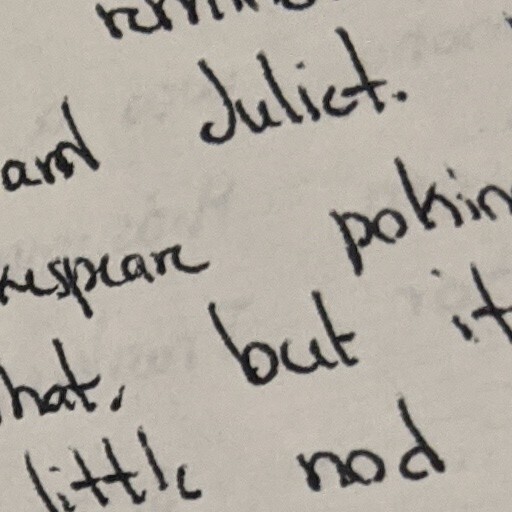 and Juliet.
espeare pokin
hat, but it
little nod